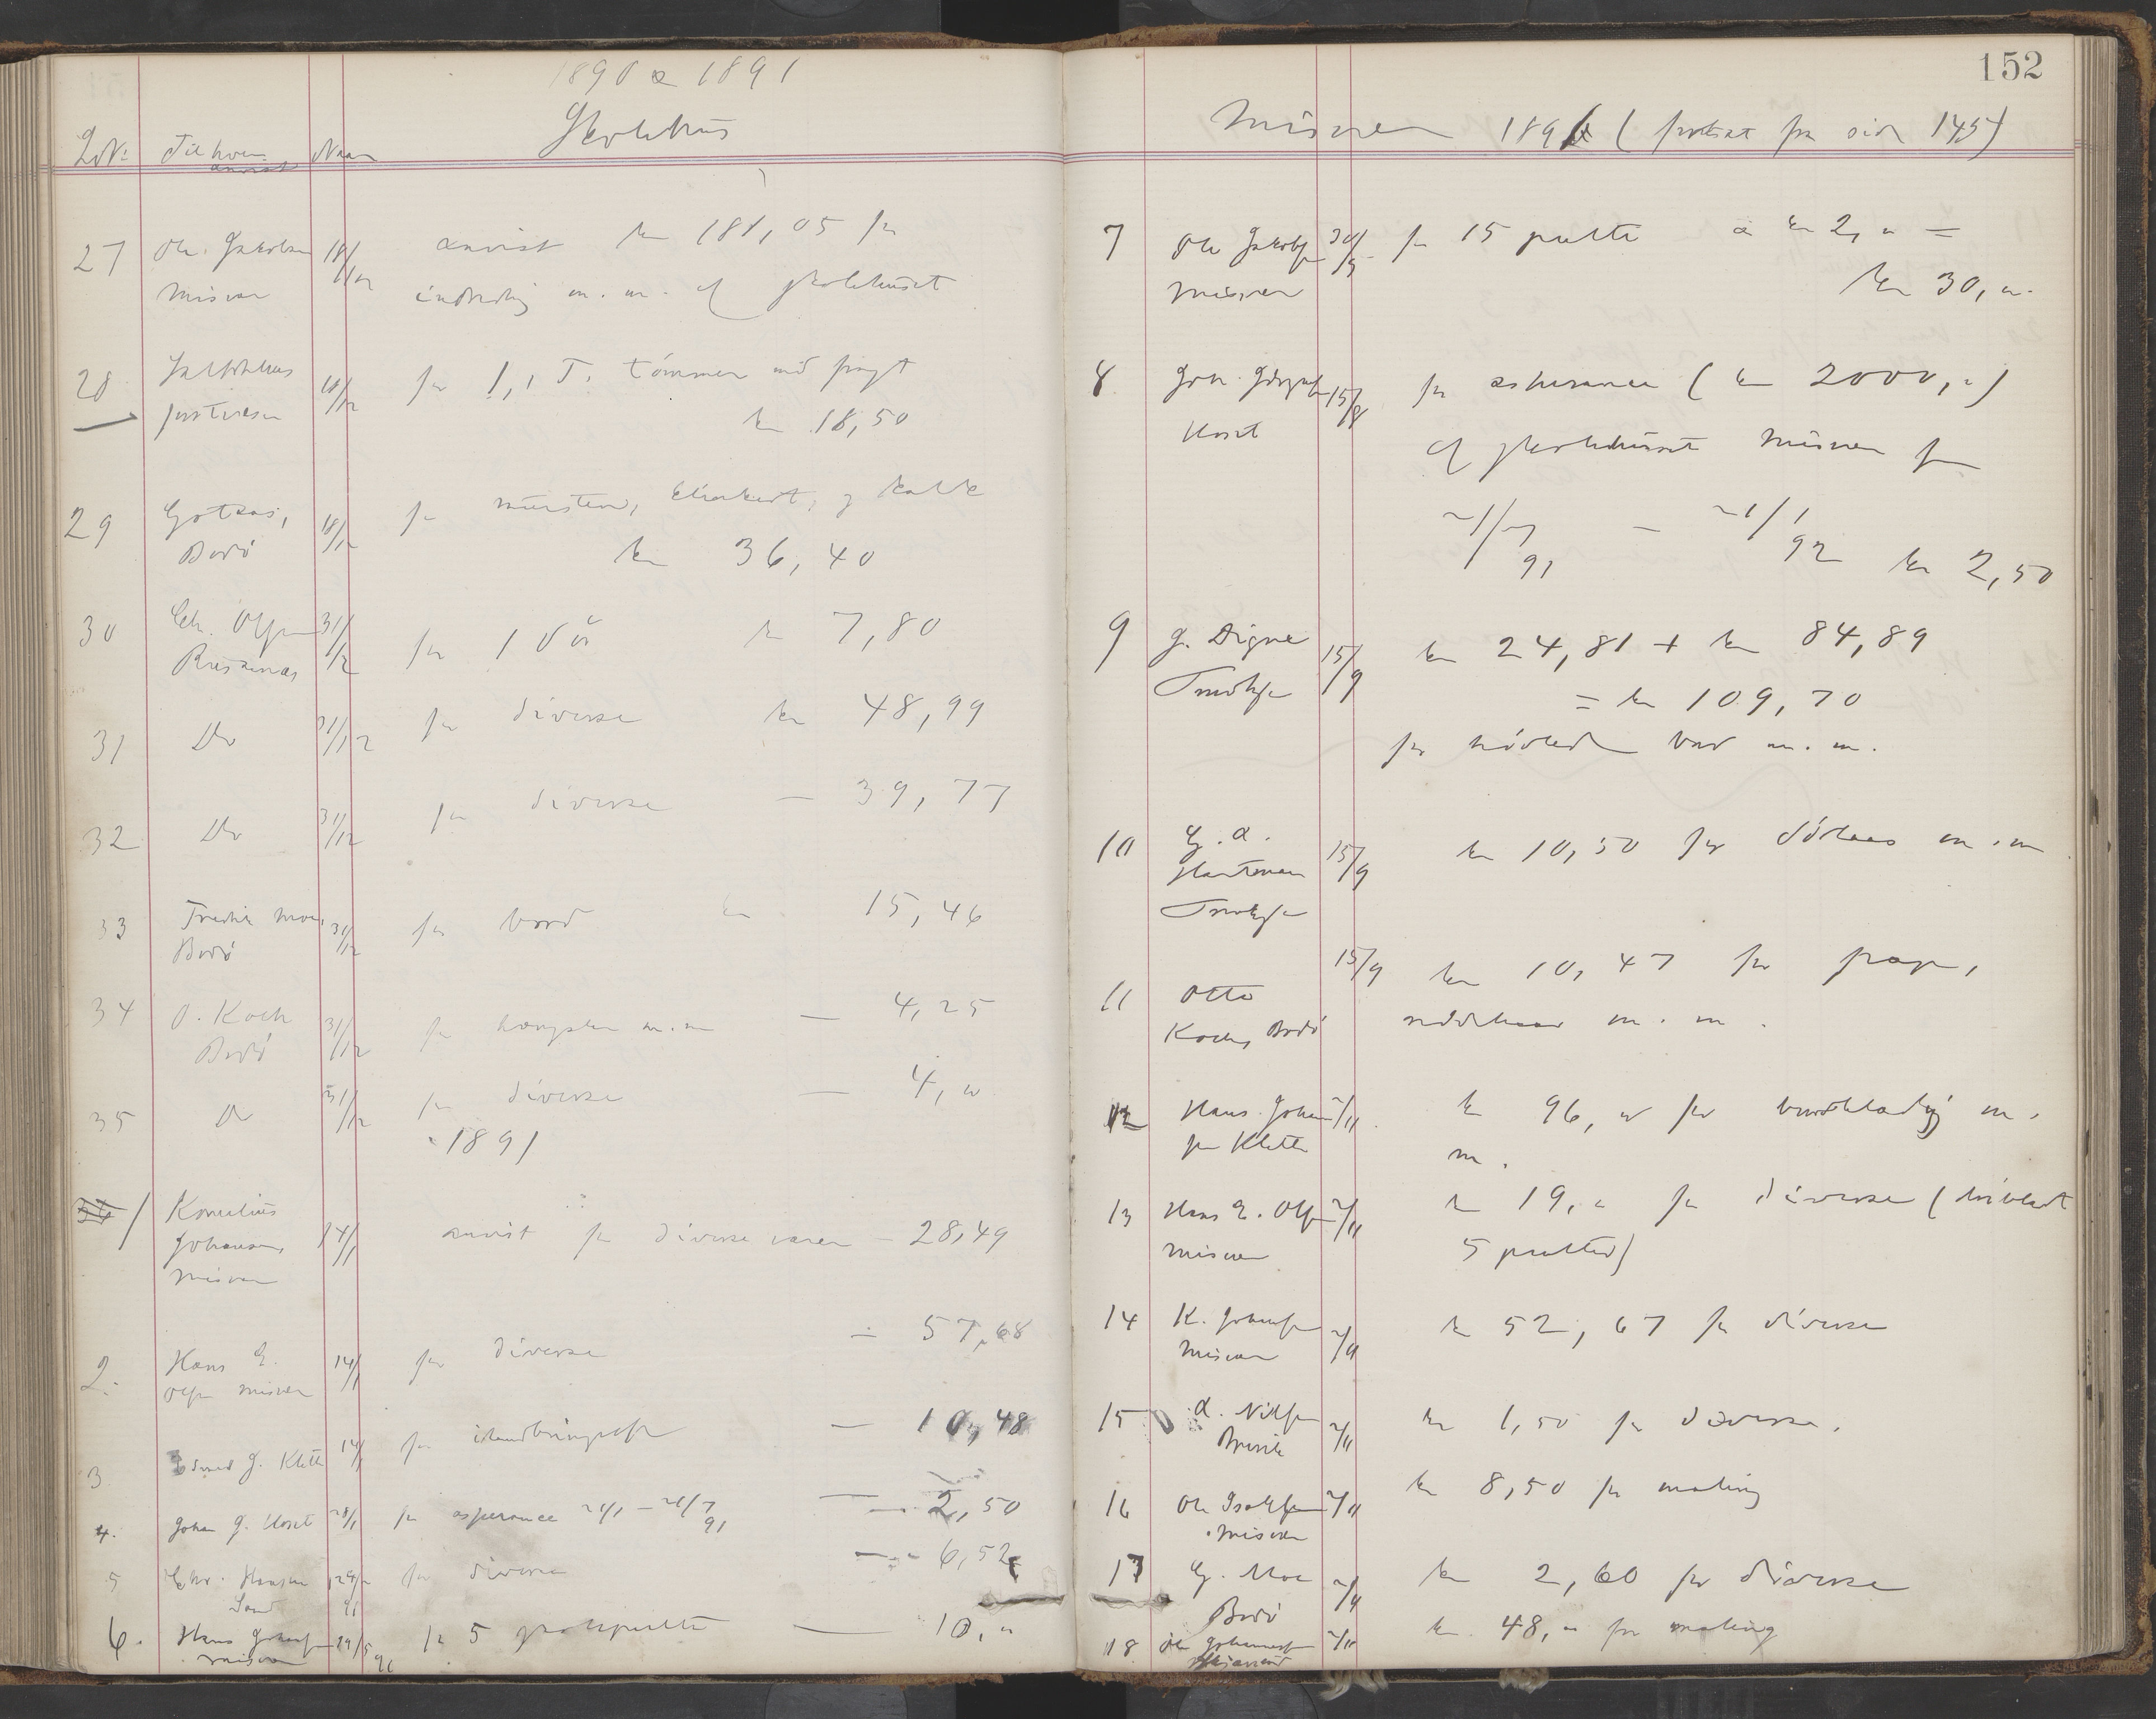 152
1890 & 1891
Skolehus
LNo Til hvem anvist Naar
27 Ole Jakobsen 18/12 anvist kr 181,05 for
Misvær indredning m. m. af skolehuset
28 18/12 for 1,1 T. tømmer med fragt
kr 18,50
29 Bodø 18/12 for mursten, og kalk
kr 36,40
30 Chr. Olsen 31/12 for 1 Dør kr 7,80
31 Do 31/12 for diverse kr 48,99
32 Do 31/12 for diverse — 39,77
33 Fredrik Moe, 31/12 for bord kr 15,46
Bodø
34 O. Koch 31/12 for hængsler m.m — 4,25
Bodø
35 Do 31/12 for diverse — 4,"
1891
1 Kornelius
Johansen, 14/1 anvist for diverse varer — 28,49
Misvær
2. Hans E. 14/1 for diverse — 57,68
Olsen Misvær
3 Edvard J. Klette 14/1 for — 10,48
4. Johan J. Hoset 28/1 for assurance 21/1 — 21/7 91 — 2,50
5 Chr. Hansen for diverse — 6,52
Sand 91
6. Hans Johansen 19/5 91 for 5 skolepulte — 10,"
Misvær
Misvær 1891 (fortsat fra side 145)
7 Ole Jakobsen 30/5 for 15 pulte a kr 2," =
Misvær kr 30,"
8 15/8 for assurance (kr 2000,")
Hoset af skolehuset Misvær fra
21/7 91 — 21/1 92 kr 2,50
9 J. Digre 15/9 kr 24,81 + kr 84,89
Trondhjem = kr 109,70
for høvlede bord m. m.
10 15/9 kr 10,50 for dørlaas m. m
Hartman
Trondhjem
11 Otto 15/9 kr 10,47 for pap,
Koch, Bodø m. m.
12 Hans Johan- 2/11 kr 96," for bordklædning m.
sen Klette m.
13 Hans E. Olsen 2/11 kr 19," for diverse (iberegnet
Misvær 5 pulter)
14 K. Johansen 2/11 kr 52,67 for diverse
Misvær
15 A. Nilsen 2/11 kr 1,50 for diverse.
16 Ole Isaksen 2/11 kr 8,50 for maling
Misvær
17 Moe 2/11 kr 2,60 for diverse
Bodø
18 Ole Johannesen 2/11 kr 48," for maling